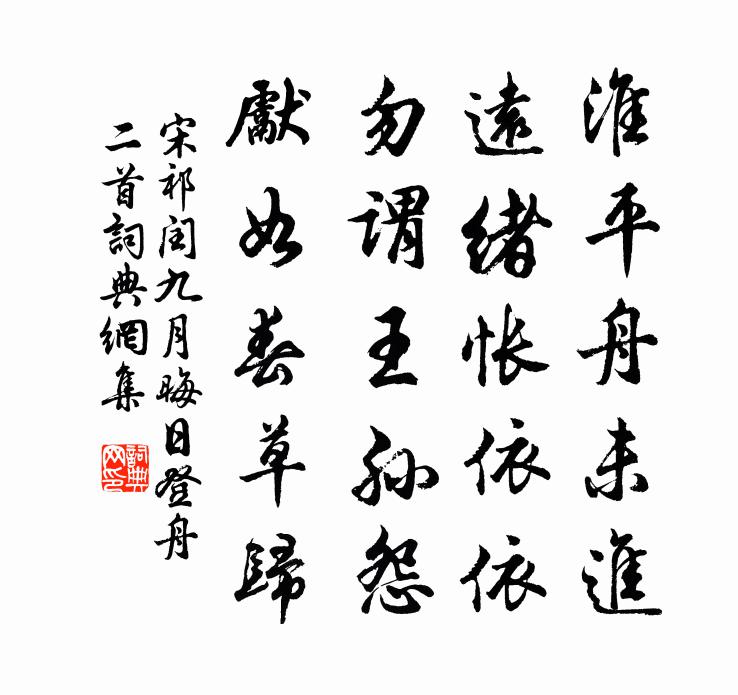 淮平舟未進
遠緒悵依依
勿謂王孫怨
獻如春草歸
宋祁閏九月晦日登舟
二首詞典網集
詞典网印